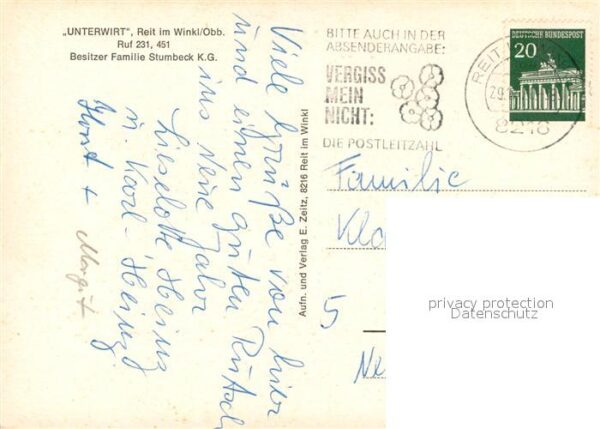 „UNTERWIRT", Reit im Winkl/Obb.
Ruf 231, 451
Besitzer Familie Stumbeck K.G.
Viele Grüße von hier
und einen guten Rutsch
ins Neue Jahr
Lieselotte Heinz
u. Karl-Heinz
Horst + Margit
Aufn. und Verlag E. Zeitz, 8216 Reit im Winkl
BITTE AUCH IN DER
ABSENDERANGABE:
VERGISS
MEIN
NICHT:
DIE POSTLEITZAHL
REIT
29.
8216
DEUTSCHE BUNDESPOST
20
Familie
Kla
5
Ne
privacy protection
Datenschutz